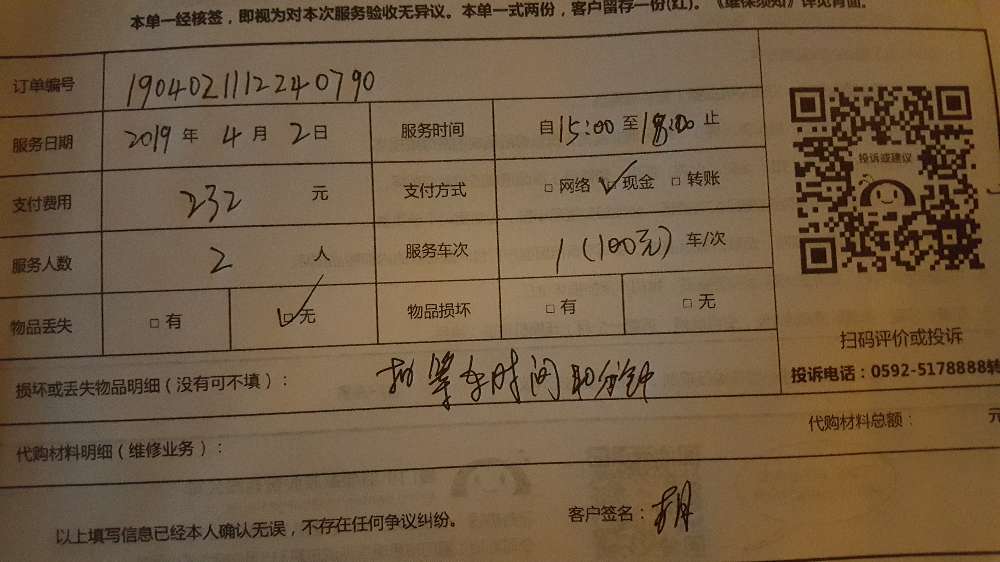 本单一经核签，即视为对本次服务验收无异议。本单一式两份，客户留存一份(红)。《维保须知》详见背面。
订单编号 1904021112240790
服务日期 2019 年 4 月 2 日 服务时间 自 15:00 至 18:00 止
支付费用 232 元 支付方式 □ 网络 ☑ 现金 □ 转账
服务人数 2 人 服务车次 1 (100元) 车/次
物品丢失 □ 有 ☑ 无 物品损坏 □ 有 □ 无
投诉或建议
扫码评价或投诉
投诉电话：0592-5178888转
损坏或丢失物品明细（没有可不填）： 时间 分钟
代购材料明细（维修业务）： 代购材料总额： 元
以上填写信息已经本人确认无误，不存在任何争议纠纷。 客户签名：